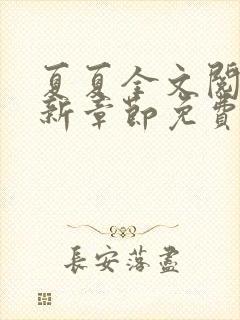 夏夏全文閱
新章節免費
長安落盡